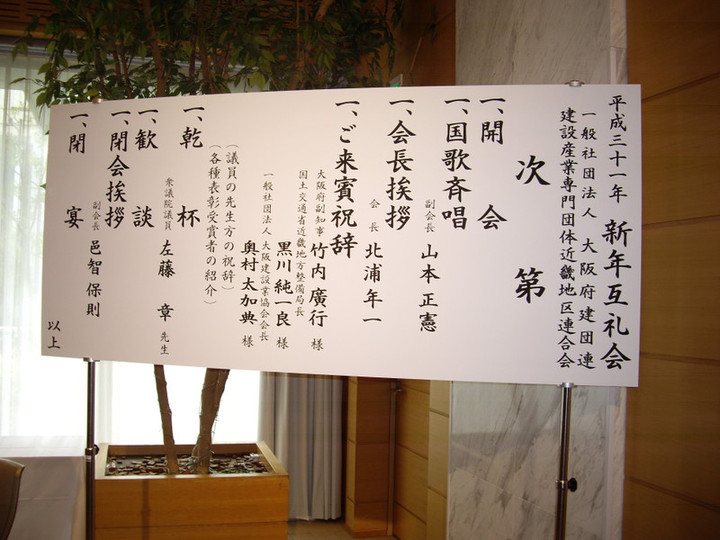 平成三十一年 新年互礼会
一般社団法人 大阪府建団連
建設産業専門団体近畿地区連合会
次第
一、開会
一、国歌斉唱
副会長 山本 正憲
一、会長挨拶
会長 北浦 年一
一、ご来賓祝辞
大阪府副知事 竹内 廣行 様
国土交通省近畿地方整備局長 黒川 純一良 様
一般社団法人 大阪建設業協会会長 奥村 太加典 様
(議員の先生方の祝辞)
(各種表彰受賞者の紹介)
一、乾杯
衆議院議員 左藤 章 先生
一、歓談
一、閉会挨拶
副会長 邑智 保則
一、閉宴
以上